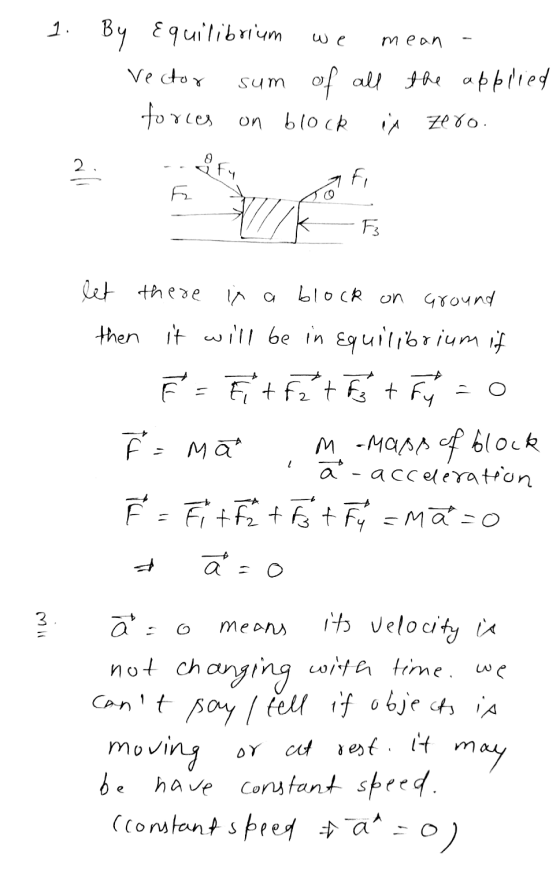 1. By Equilibrium we mean -
Vector sum of all the applied
forces on block is zero.
2.
θ F4 F1
F2 θ
F3
let there is a block on ground
then it will be in Equilibrium if
F⃗ = F⃗1 + F⃗2 + F⃗3 + F⃗4 = 0
F⃗ = Ma⃗ , M - Mass of block
a⃗ - acceleration
F⃗ = F⃗1 + F⃗2 + F⃗3 + F⃗4 = Ma⃗ = 0
⇒ a⃗ = 0
3. a⃗ = 0 means its velocity is
not changing with time. we
can't say / tell if objects is
moving or at rest. it may
be have constant speed.
(constant speed ⇒ a⃗ = 0)